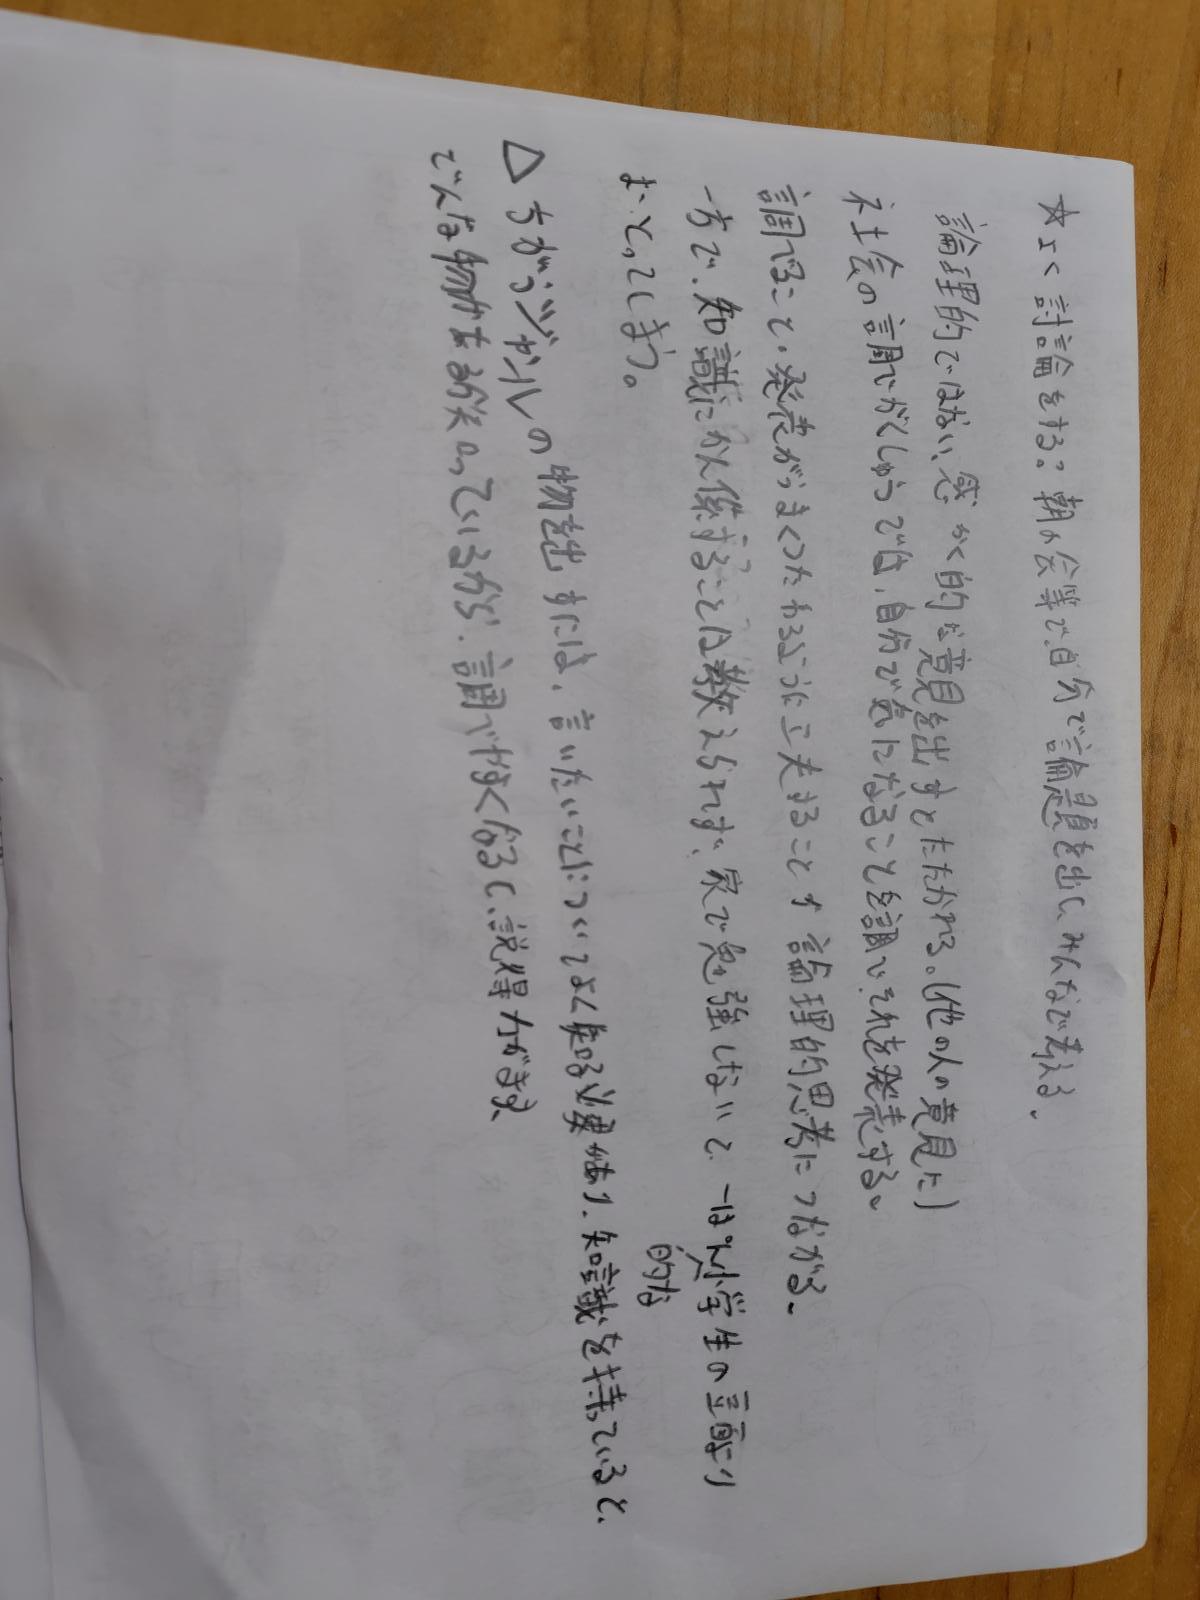 ☆よく討論をする:朝の会等で、自分で論題を出し、みんなで考える。
論理的ではない、感かく的な意見を出すとたたかれる。(他の人の意見に)
社会の調べがくしゅうでは、自分で気になることを調べ、それを発表する。
調べること、発表がうまくつたわるように工夫することが論理的思考につながる。
一方で、知識にかん係することは教えられず、家で勉強しないと、一ぱん的な小学生の頭より
おとってしまう。
△ちがうジャンルの物を出すには、言いたいことについてよく知る必要があり、知識を持っていると、
どんな物があるか知っているから、調べやすくなるし、説得力がます。